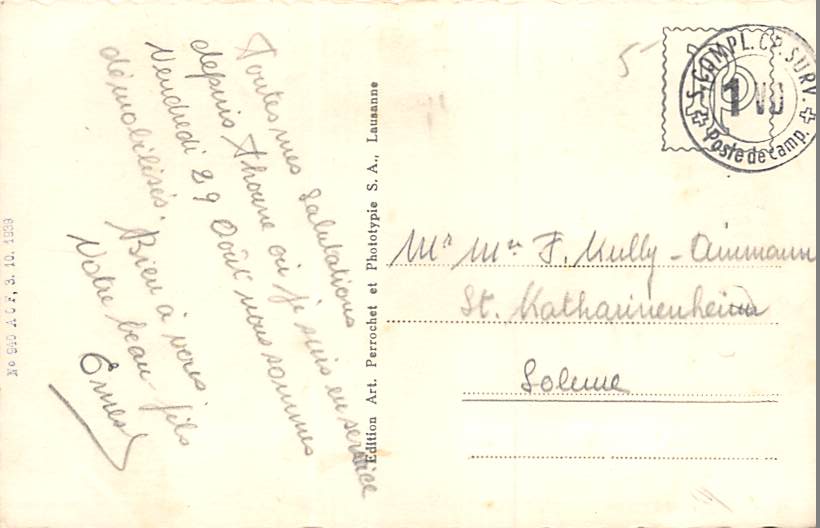 Toutes mes Salutations
depuis Thoune où je suis en service
Vendredi 29 Août nous sommes
démobilisés. Bien à vous
Votre beau-fils
Ernest
Edition Art. Perrochet et Phototypie S. A., Lausanne
No 940 A C F, 3. 10. 1939
5
S. COMPL. CP. SURV.
1 VU
Poste de camp.
Mr Mme F. Kully-Ammann
St. Katharinenheim
Soleure